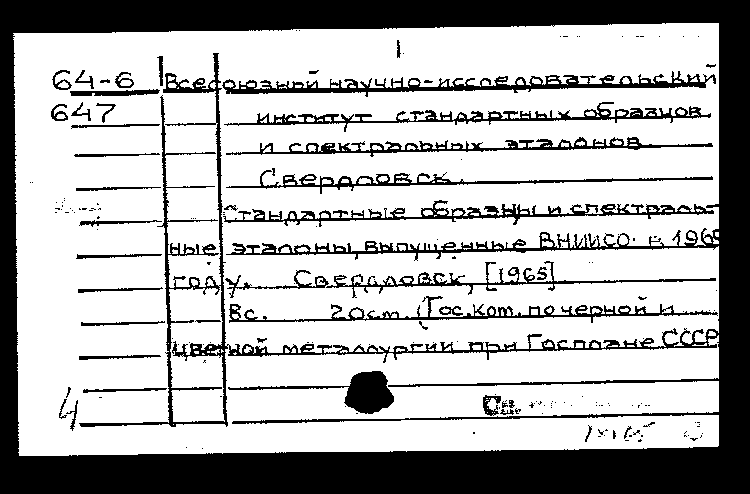 1
64-6 Всесоюзный научно-исследовательский
647 институт стандартных образцов
и спектральных эталонов.
Свердловск.
Стандартные образцы и спектраль-
ные эталоны, выпущенные ВНИИСО в 1965
году. Свердловск, [1965]
8с. 20см. (Гос.ком. по черной и
цветной металлургии при Госплане СССР
4